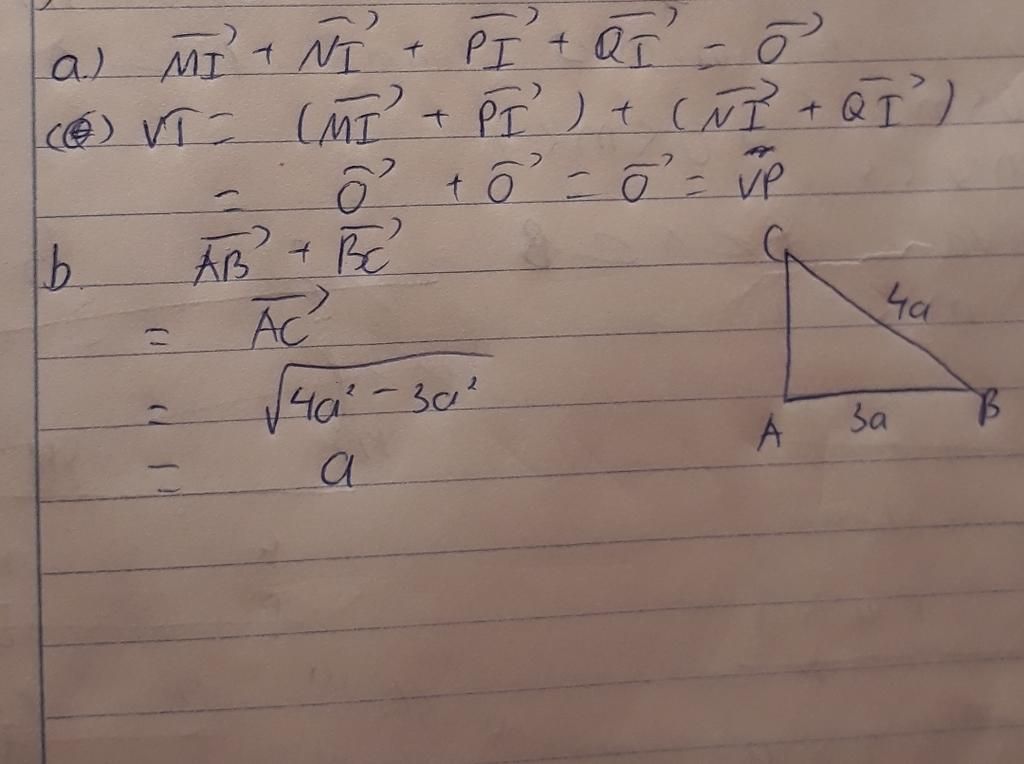 a) MI⃗ + NI⃗ + PI⃗ + QI⃗ = O⃗
VT = (MI⃗ + PI⃗) + (NI⃗ + QI⃗)
= O⃗ + O⃗ = O⃗ = VP
b AB⃗ + BC⃗
= AC⃗
= √(4a² - 3a²)
= a
C
4a
A 3a B